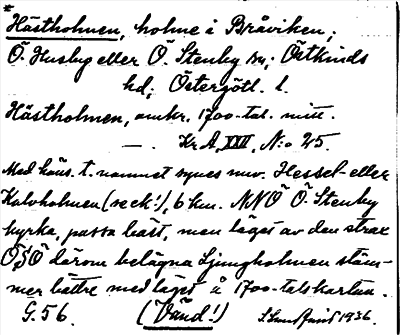 Hästholmen, holme i Bråviken;
Ö. Husby eller Ö. Stenby sn; Östkinds
hd; Östergötl. l.
Hästholmen, omkr. 1700-tal. mitt.
— Kr. A, XXII, N:o 25.
Med häns. t. namnet synes nuv. Hessel- eller
Kalvholmen (se ek!), 6 km. NNÖ Ö. Stenby
kyrka, passa bäst, men läget av den strax
ÖSÖ därom belägna Ljungholmen stäm-
mer bättre med läget å 1700-talskartan.
G. 56. (Vänd!) 1936.